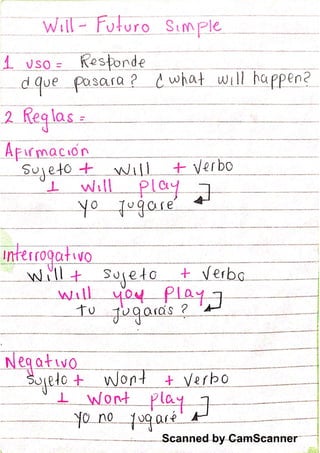 Will - Futuro Simple
1 uso = Responde
d que pasara? ¿ what will happen?
2 Reglas =
Afirmación
Sujeto + will + Verbo
I will play
yo jugaré
interrogativo
Will + sujeto + Verbo
will you play
tu jugaras ?
Negativo
Sujeto + Wont + Verbo
I Wont play
yo no jugaré
Scanned by CamScanner